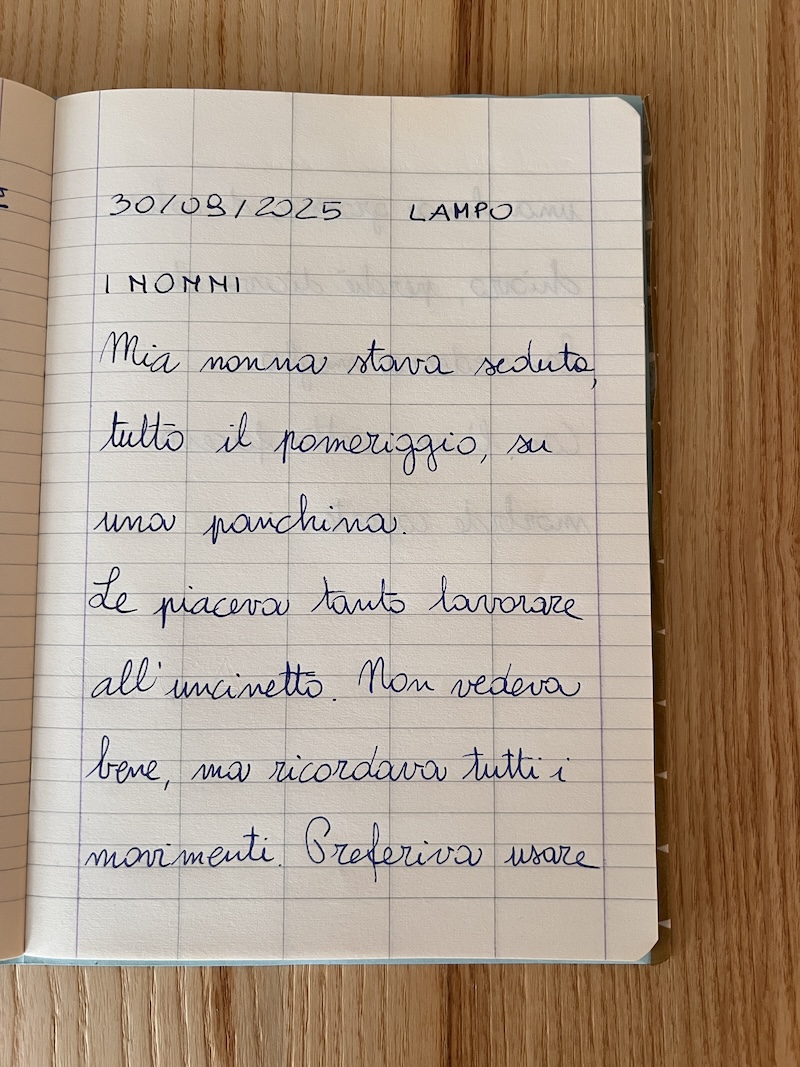 30/09/2025 LAMPO
I NONNI
Mia nonna stava seduta,
tutto il pomeriggio, su
una panchina.
Le piaceva tanto lavorare
all'uncinetto. Non vedeva
bene, ma ricordava tutti i
movimenti. Preferiva usare